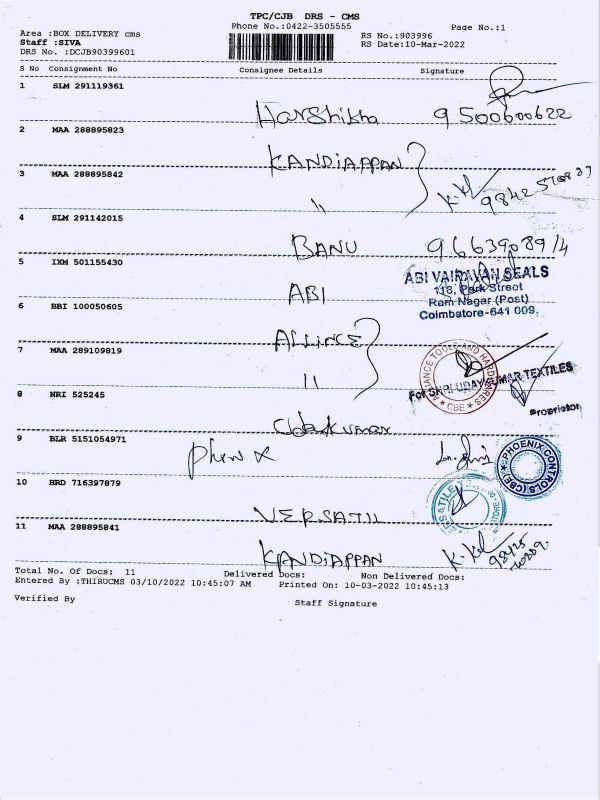 TPC/CJB DRS - CMS
Phone No.:0422-3505555 Page No.:1
Area :BOX DELIVERY cms RS No.:903996
Staff :SIVA RS Date:10-Mar-2022
DRS No. :DCJB90399601
S No Consignment No Consignee Details Signature
1 SLM 291119361
Harshikha 9500600622
2 MAA 288895823
KANDIAPPAN
3 MAA 288895842
"
4 SLM 291142015
BANU
5 IXM 501155430
ABI VAIRAVAN SEALS
118, Park Street
Ram Nagar (Post)
Coimbatore-641 009.
ABI
6 BBI 100050605
ALLINCE
7 MAA 289109819
ALLIANCE TOOLS AND HARDWARES
* CBE *
For SHRI UDAYKUMAR TEXTILES
Proprietor
"
8 NRI 525245
9 BLR 5151054971
PHOENIX CONTROLS (CBE)
10 HRD 716397879
VERSATIL
11 MAA 288895841
KANDIAPPAN
Total No. Of Docs: 11 Delivered Docs: Non Delivered Docs:
Entered By :THIRUCMS 03/10/2022 10:45:07 AM Printed On: 10-03-2022 10:45:13
Verified By Staff Signature